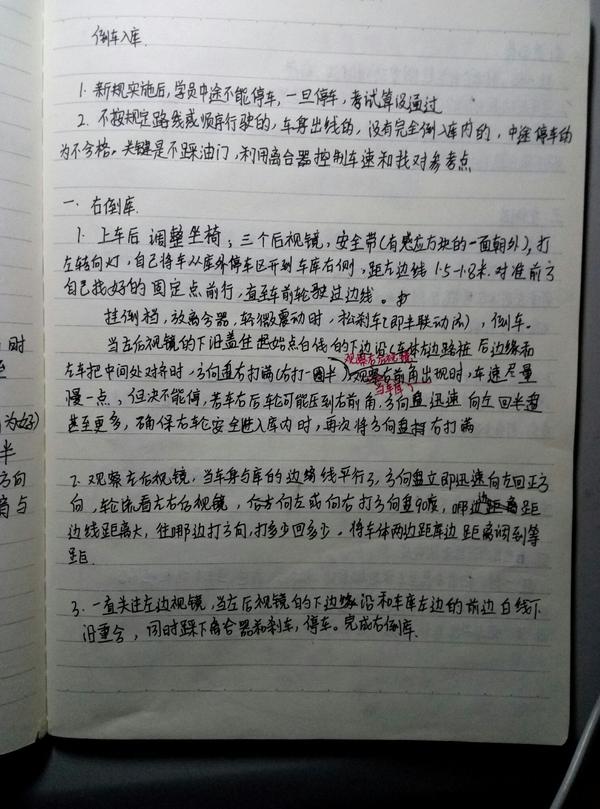 倒车入库.
1. 新规实施后,学员中途不能停车,一旦停车,考试算没通过
2. 不按规定路线或顺序行驶的,车身出线的,没有完全倒入库内的,中途停车的
为不合格。关键是不踩油门,利用离合器控制车速和找对参考点
一.右倒库.
1. 上车后 调整坐椅;三个后视镜,安全带(有感应方块的一面朝外),打
左转向灯,自己将车从库外停车区开到车库右侧,距左边线1.5-1.8米.对准前方
自己找好的固定点前行,直至车前轮驶过边线。
挂倒档,放离合器,轻微震动时,松刹车(即半联动后),倒车。
当左后视镜的下沿盖住起始点白线的下边沿(车体左边路桩后边缘和
左车把中间处对齐时,方向盘右打满(右打一圈半)观察右后视镜
当车库右前角出现时,车速尽量
慢一点,但决不能停,若车右后轮可能压到右前角.方向盘迅速向左回半盘
甚至更多,确保右轮安全进入库内时,再次将方向盘右打满
2. 观察左后视镜,当车身与库的边线平行了,方向盘立即迅速向左回正方
向,轮流看左右后视镜,后方向左或向右打方向盘90度,哪边距
边线距离大,往哪边打方向,打多少回多少。将车体两边距库边距离调到等
距.
3. 一直关注左边视镜,当左后视镜的下边缘沿和车库左边的前边白线下
沿重合,同时踩下离合器和刹车,停车。完成右倒库.
时
为好)
半
方向
角与